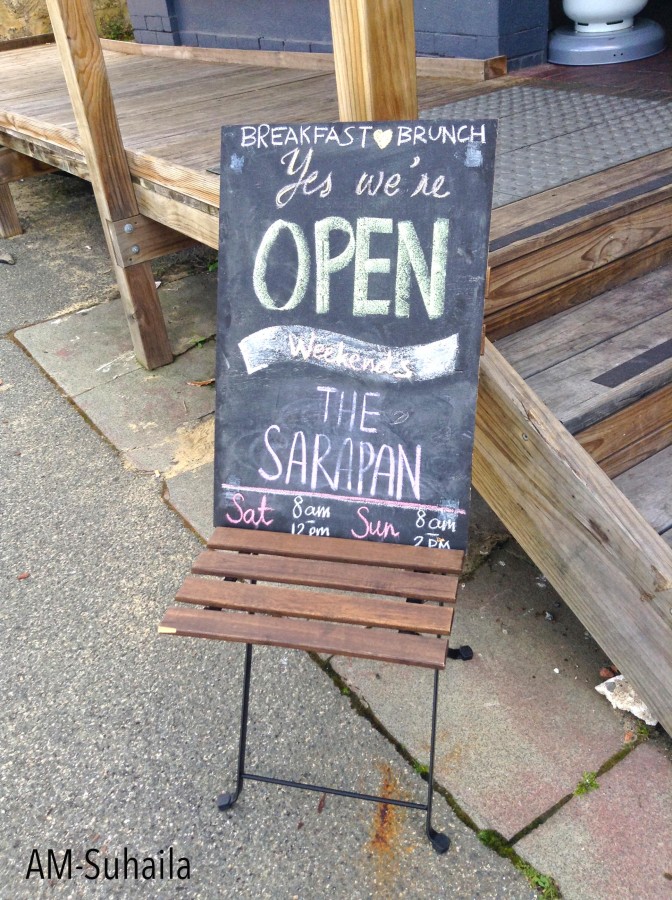 BREAKFAST BRUNCH
Yes we're
OPEN
Weekends
THE
SARAPAN
Sat 8am Sun 8am
12pm 2PM
AM-Suhaila